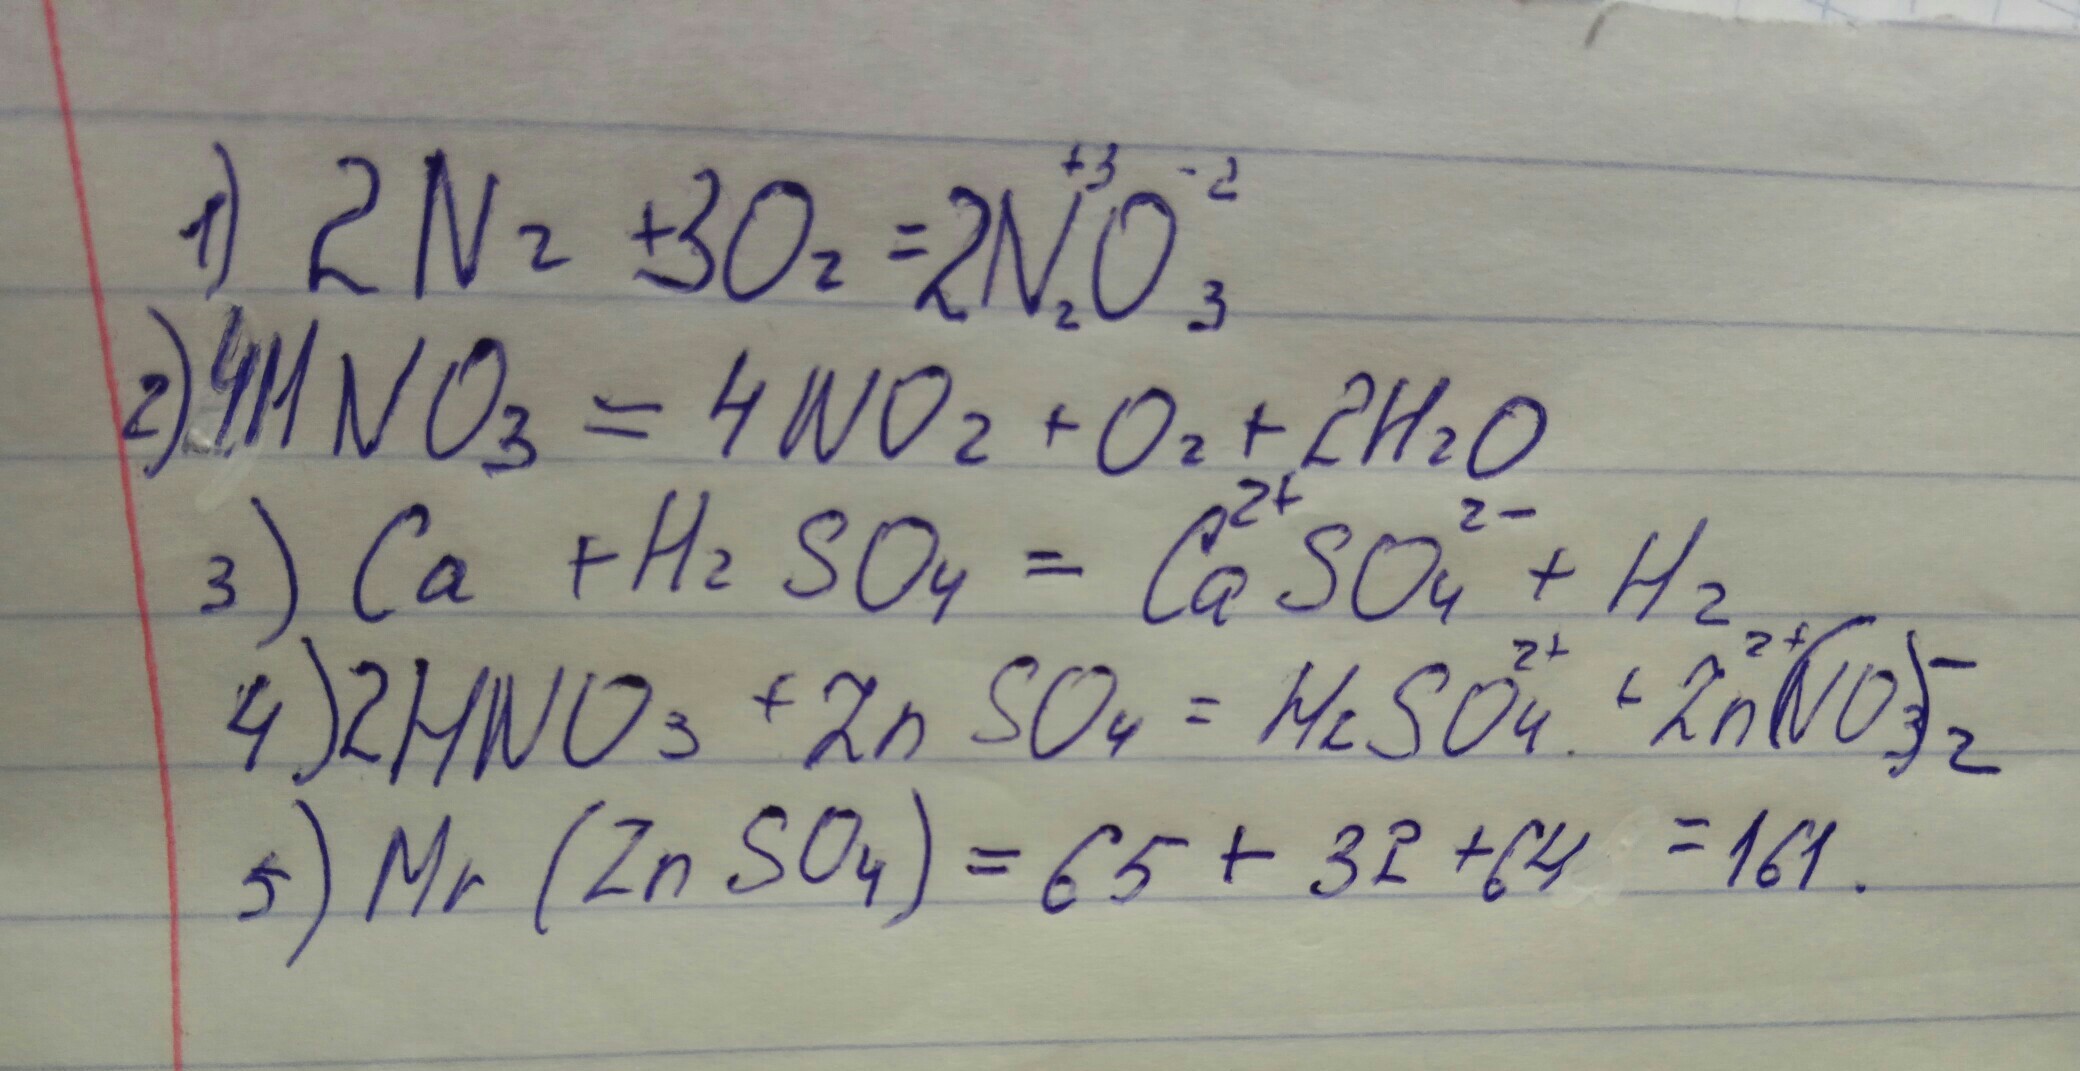 1) 2N₂ + 3O₂ = 2N₂⁺³O₃⁻²
2) 4HNO₃ = 4NO₂ + O₂ + 2H₂O
3) Ca + H₂SO₄ = Ca²⁺SO₄²⁻ + H₂
4) 2HNO₃ + ZnSO₄ = H₂SO₄²⁺ + Zn²⁺(NO₃)₂⁻
5) Mr (ZnSO₄) = 65 + 32 + 64 = 161.